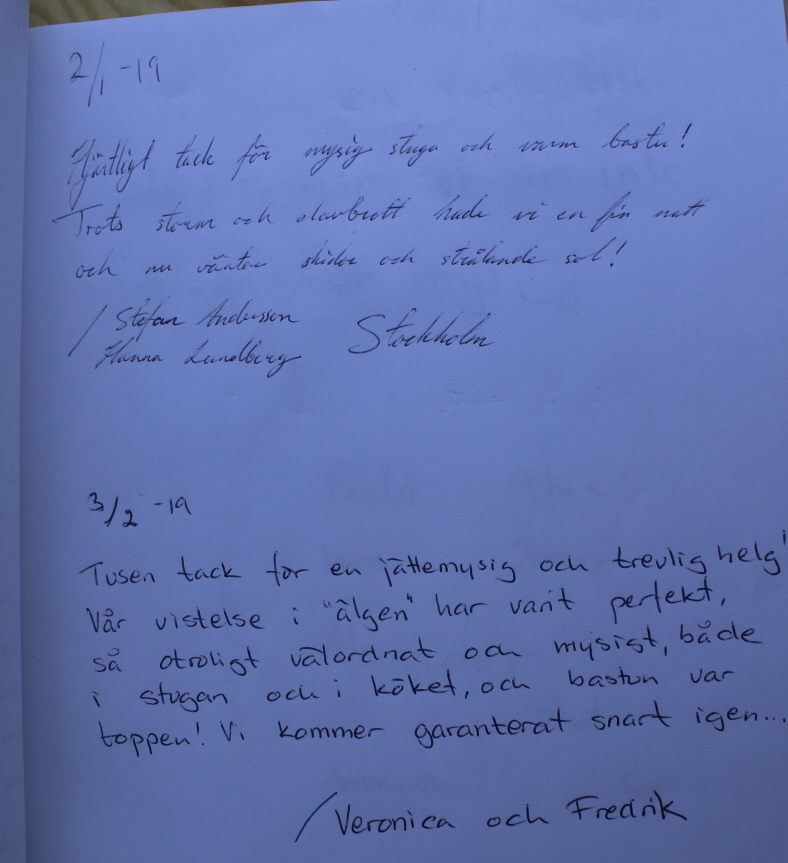 2/1 -19
Hjärtligt tack för mysig stuga och varm bastu!
Trots storm och elavbrott hade vi en fin natt
och nu väntar skidor och strålande sol!
/ Stefan Andersson
Hanna Lundberg Stockholm
3/2 -19
Tusen tack för en jättemysig och trevlig helg!
Vår vistelse i "älgen" har varit perfekt,
så otroligt välordnat och mysigt, både
i stugan och i köket, och bastun var
toppen! Vi kommer garanterat snart igen...
/Veronica och Fredrik